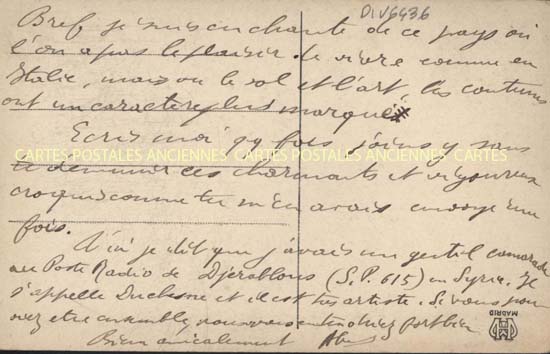 DIV6436
Bref je suis enchanté de ce pays où
l'on a pas le plaisir de vivre comme en
Italie, mais où le sol et l'art, les coutumes
ont un caractère plus marqué
Ecris moi qq fois, joins y sans
te demuner ces charmants et vigoureux
croquis comme tu m'en avais envoyé une
fois.
CARTES POSTALES ANCIENNES CARTES POSTALES ANCIENNES CARTES POSTALES ANCIENNES
T'ai je dit que j'avais un gentil camarade
au Poste Radio de Djerablous (S.P. 615) en Syrie. Il
s'appelle Duchesne et il est très artiste. Si vous pou
viez être ensemble, vous vous entendriez fort bien
Bien amicalement
MADRID